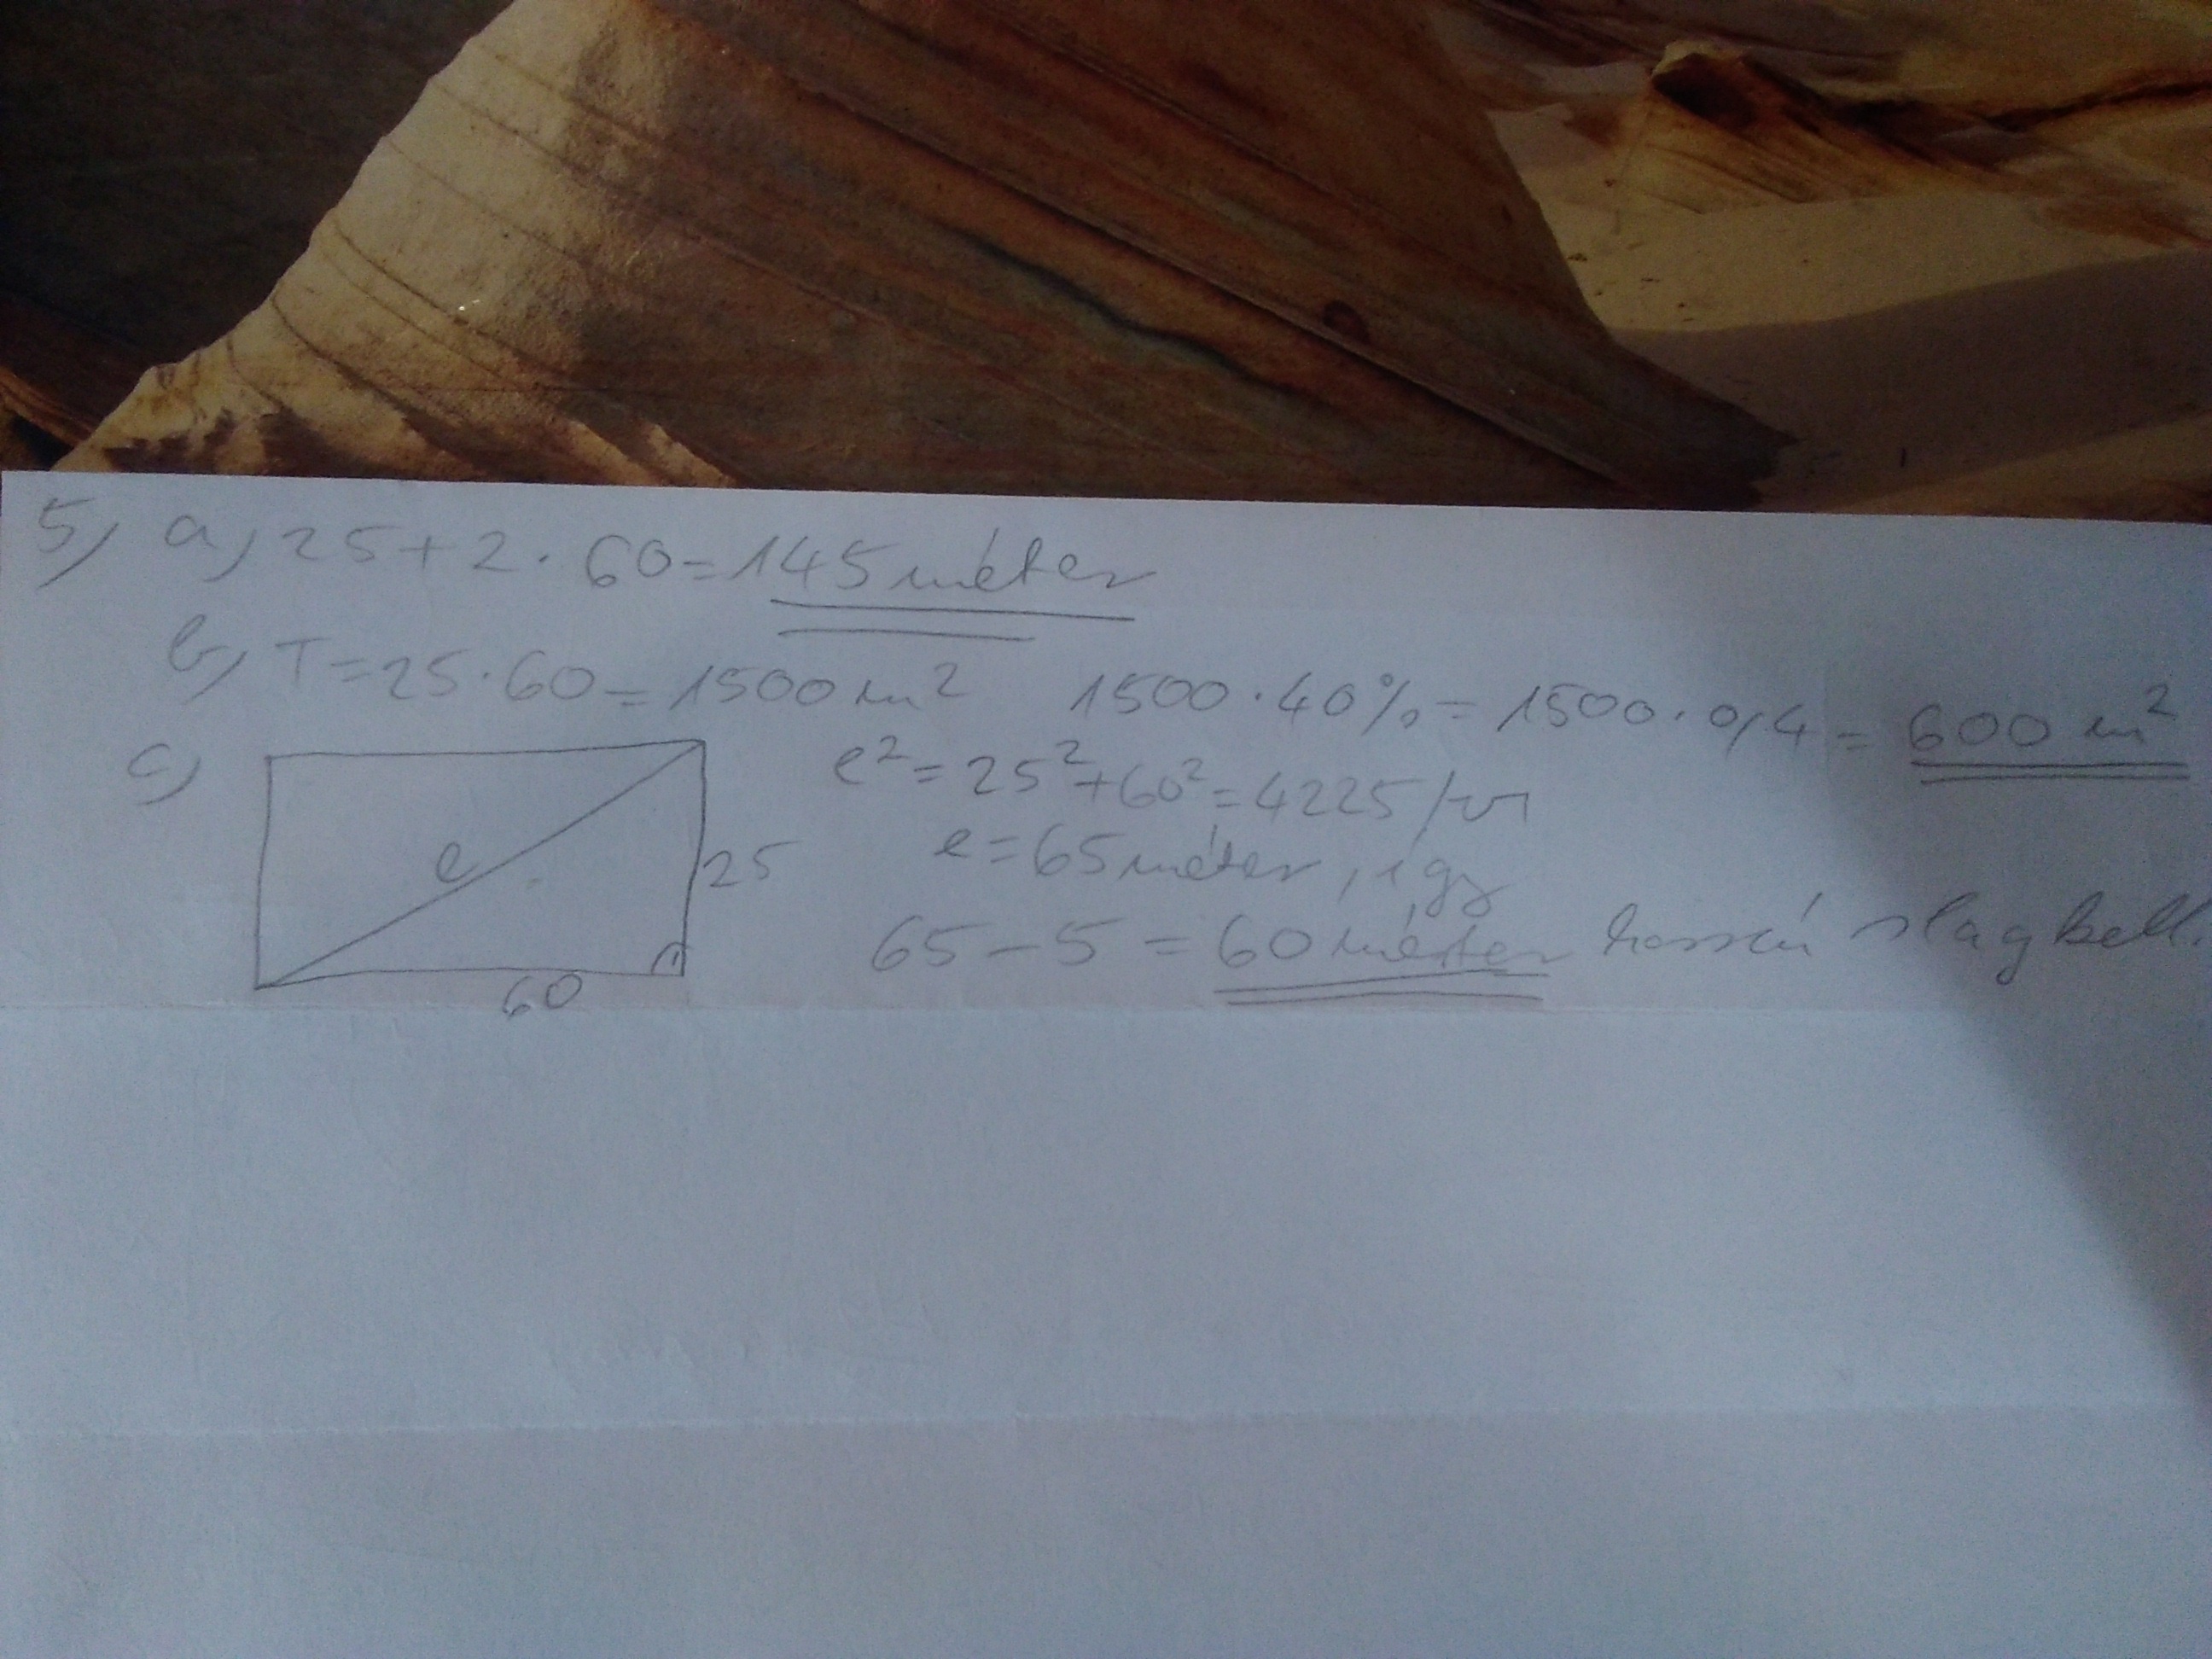 5, a, 25+2·60=145 méter
b, T=25·60=1500 m² 1500·40%=1500·0,4=600 m²
c, e²=25²+60²=4225 /√
e 25 e=65 méter, így
65-5=60 méter hosszú slag kell.
60